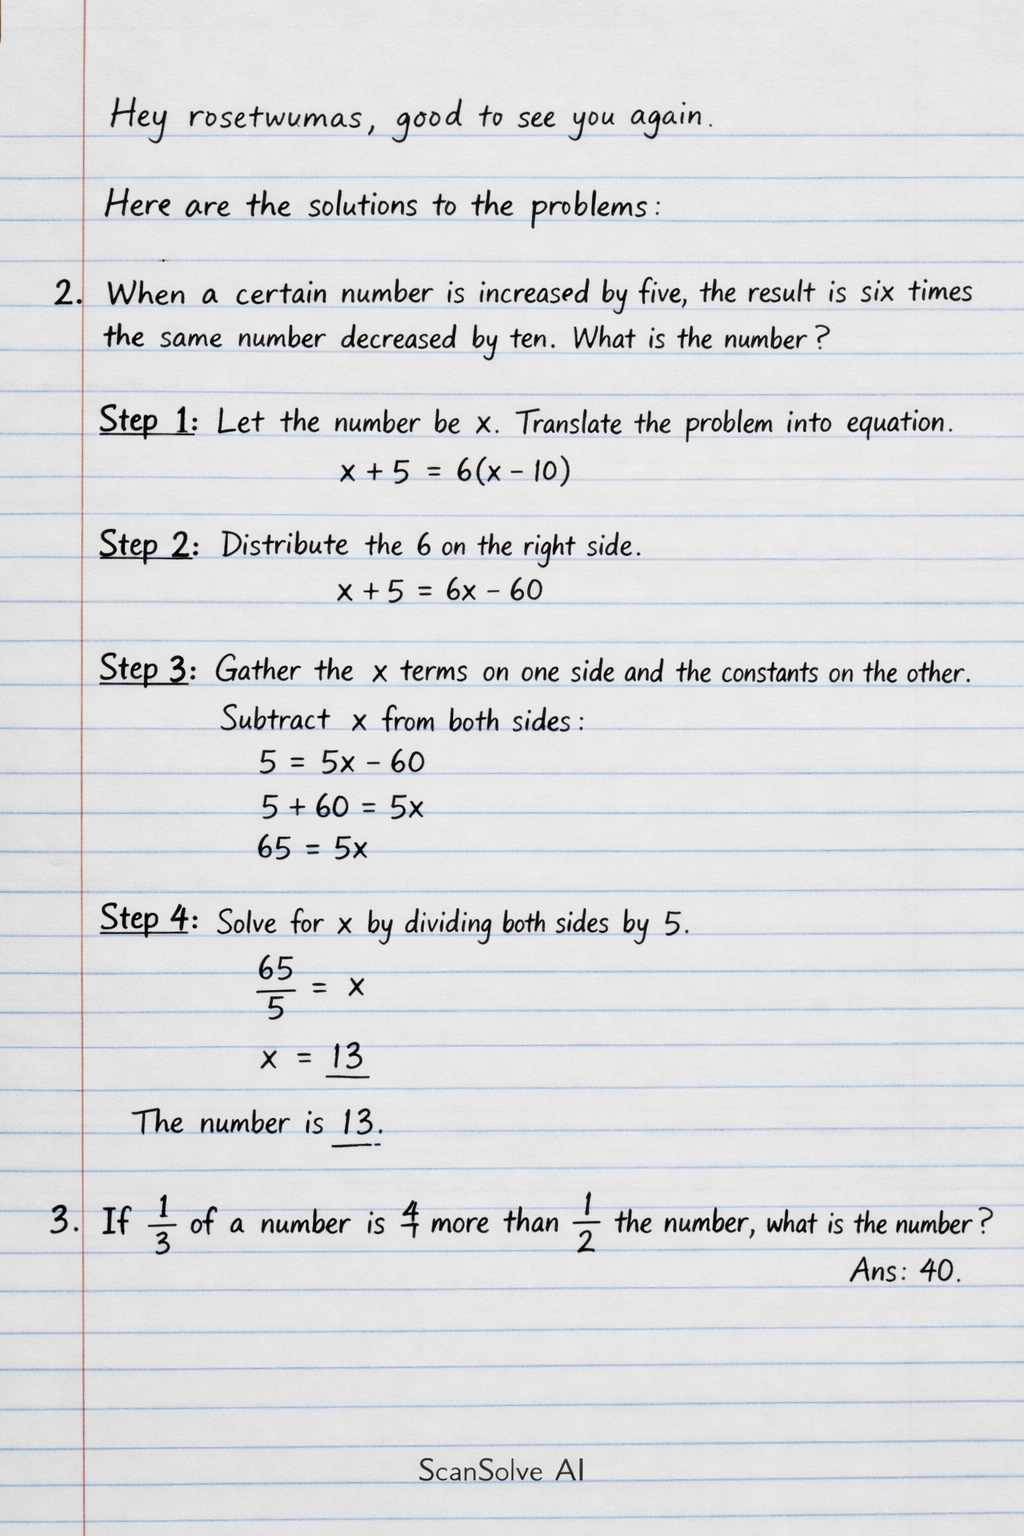 Hey rosetwumas, good to see you again.
Here are the solutions to the problems:
2. When a certain number is increased by five, the result is six times
the same number decreased by ten. What is the number?
Step 1: Let the number be x. Translate the problem into equation.
x + 5 = 6(x - 10)
Step 2: Distribute the 6 on the right side.
x + 5 = 6x - 60
Step 3: Gather the x terms on one side and the constants on the other.
Subtract x from both sides:
5 = 5x - 60
5 + 60 = 5x
65 = 5x
Step 4: Solve for x by dividing both sides by 5.
65/5 = x
x = 13
The number is 13.
3. If 1/3 of a number is more than 1/2 the number, what is the number?
Ans: 40.
ScanSolve AI